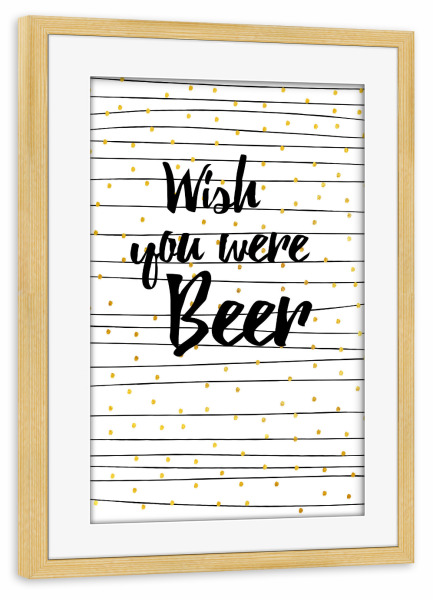 Wish
you were
Beer